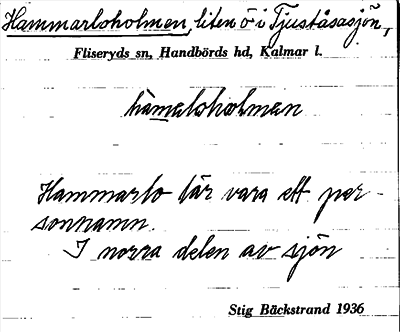 Hammarloholmen, liten ö i Tjuståsasjön,
Fliseryds sn, Handbörds hd, Kalmar l.
hàmaloholmen
Hammarlo lär vara ett per-
sonnamn.
I norra delen av sjön
Stig Bäckstrand 1936